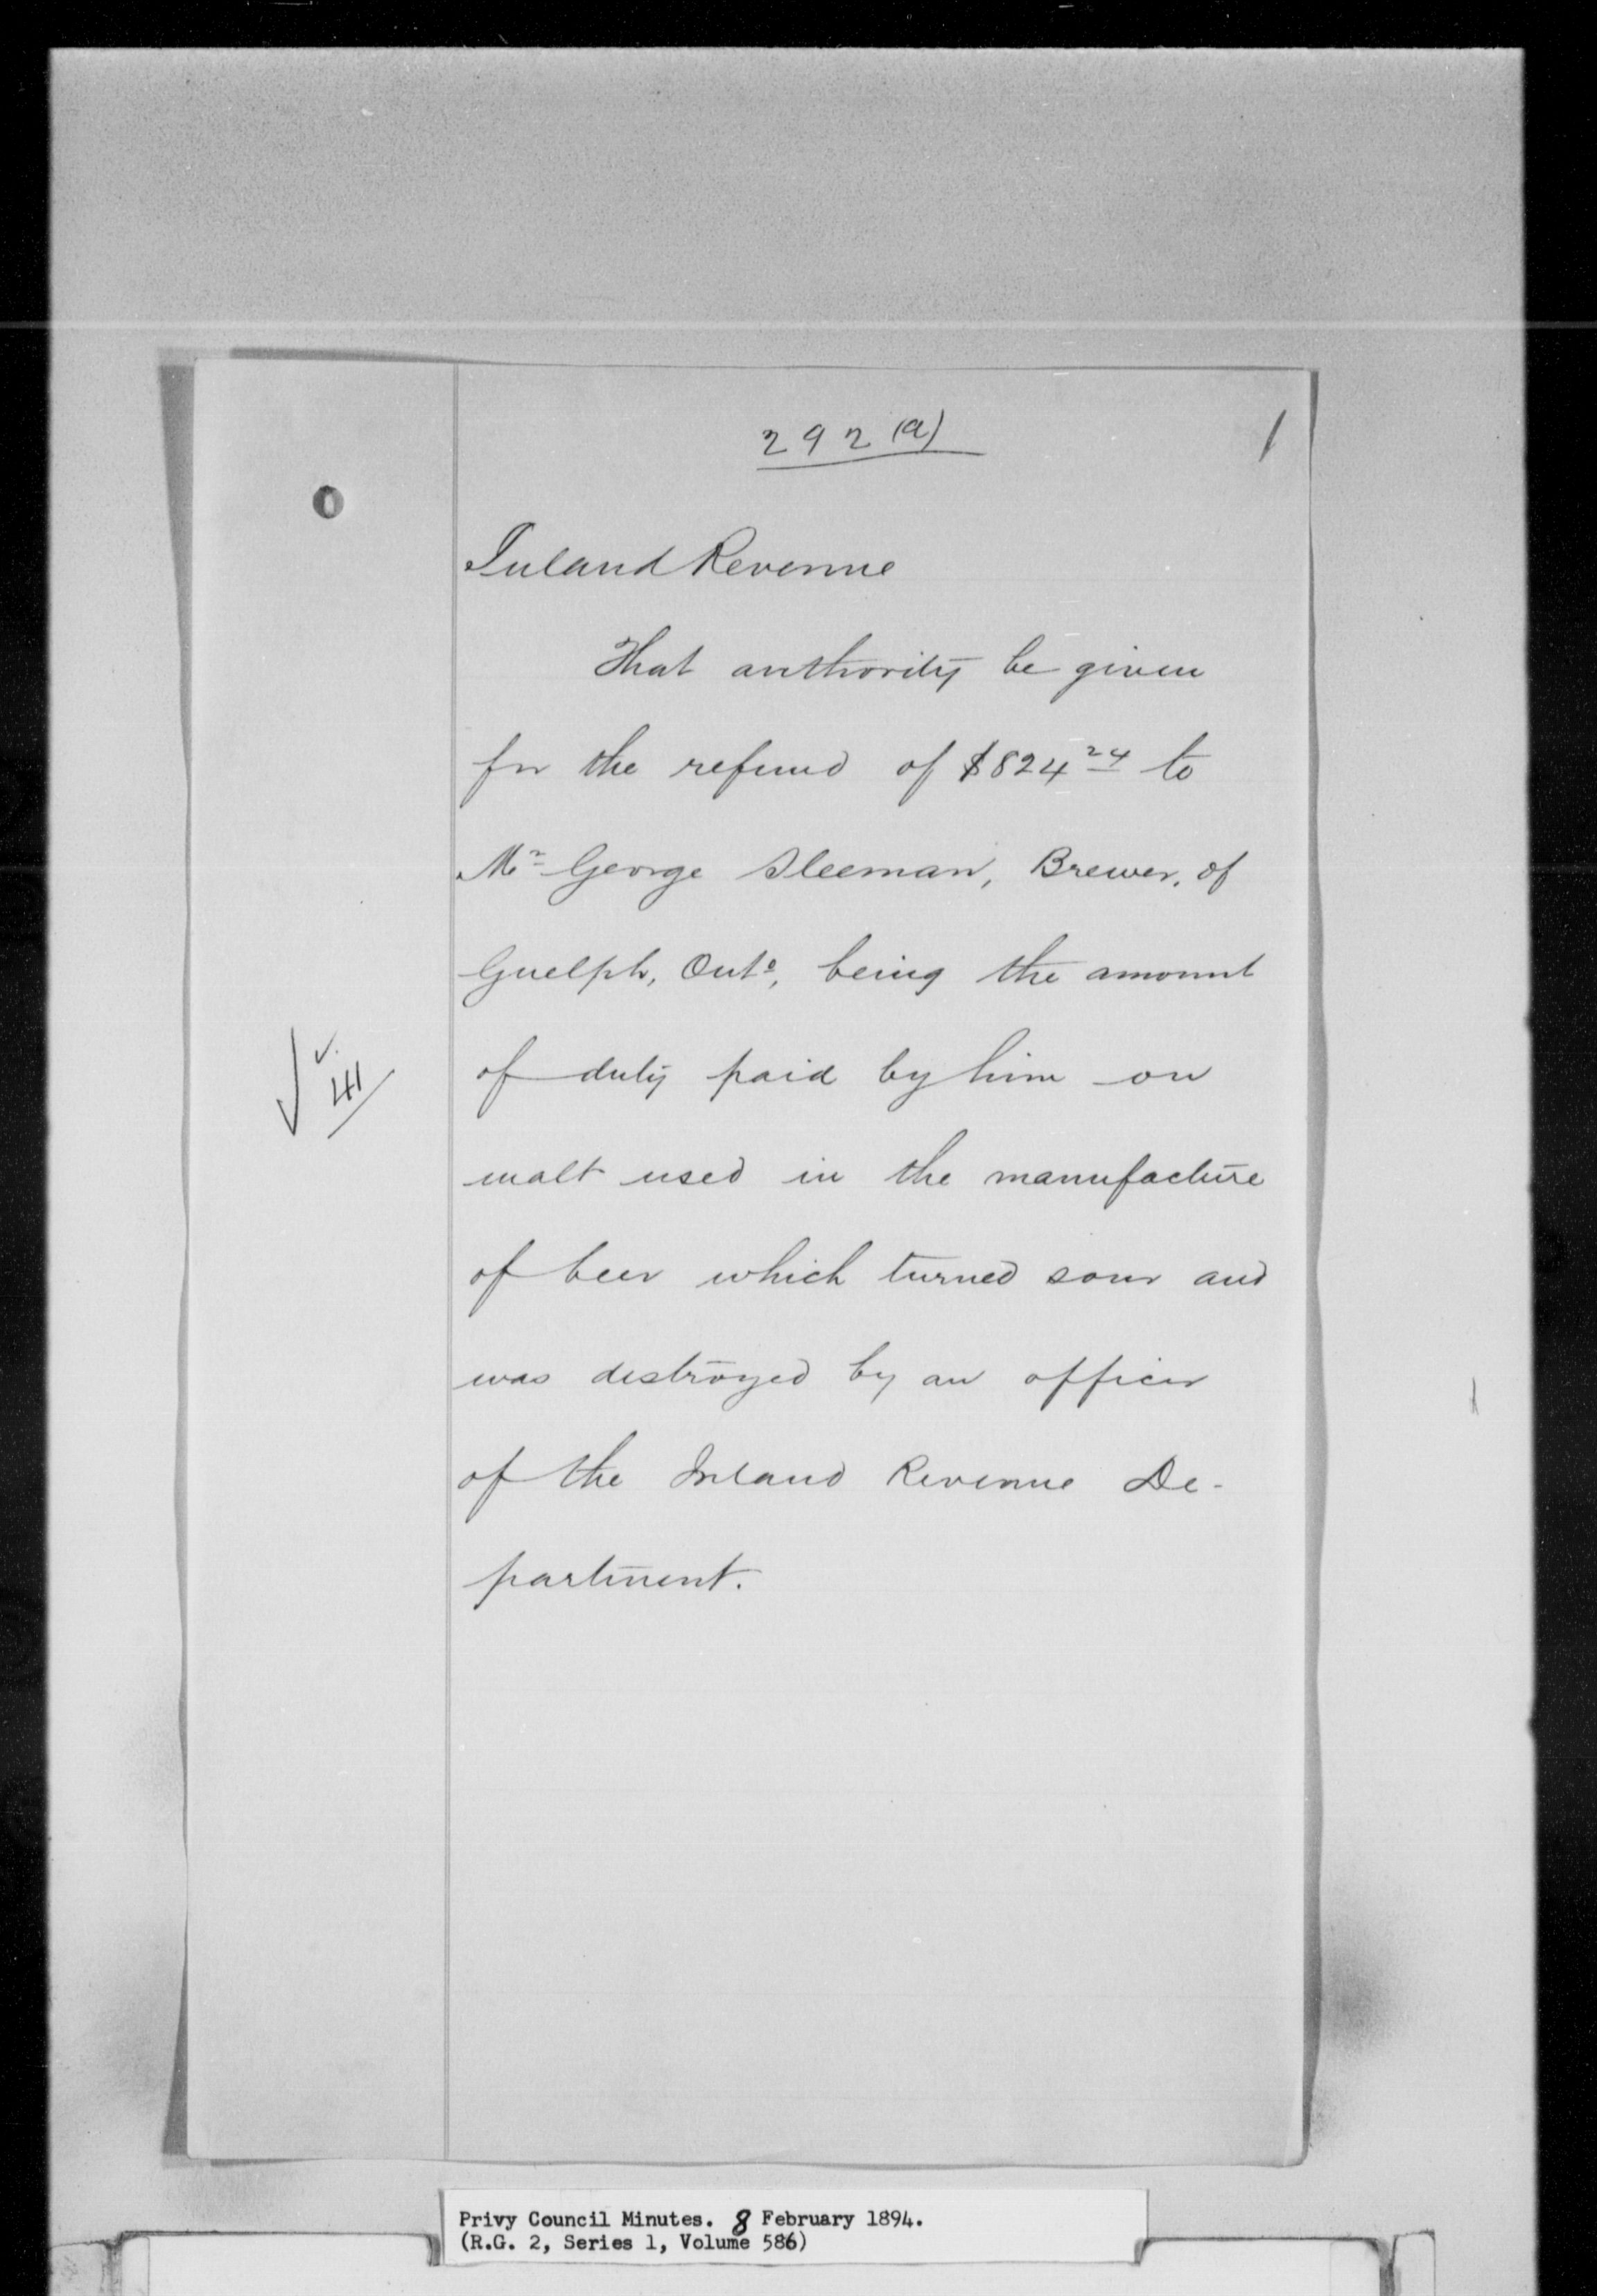 292(a)
1
Inland Revenue
That authority be given
for the refund of $824 24 to
Mr George Sleeman, Brewer, of
Guelph, Onto, being the amount
of duty paid by him on
v.
41
malt used in the manufacture
of beer which turned sour and
was destroyed by an officer
of the Inland Revenue De-
partment.
Privy Council Minutes. 8 February 1894.
(R.G. 2, Series 1, Volume 586)